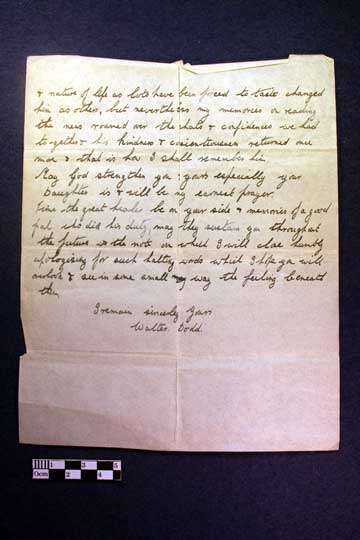 & nature of life as lots have been forced to taste changed
him as others, but nevertheless my memories on reading
the news roamed over the chats & confidences we had
together & his kindness & conscientiousness returned once
more & that is how I shall remember him.
May God strengthen you & yours especially your
Daughter is & will be my earnest prayer.
Time the great healer be on your side & memories of a good
pal who did his duty may they sustain you throughout
the future is the note on which I will close humbly
apologising for such halting words which I hope you will
overlook & see in some small way the feeling beneath
them
I remain sincerely Yours
Walter Dodd.
0cm 1 2 3 4 5